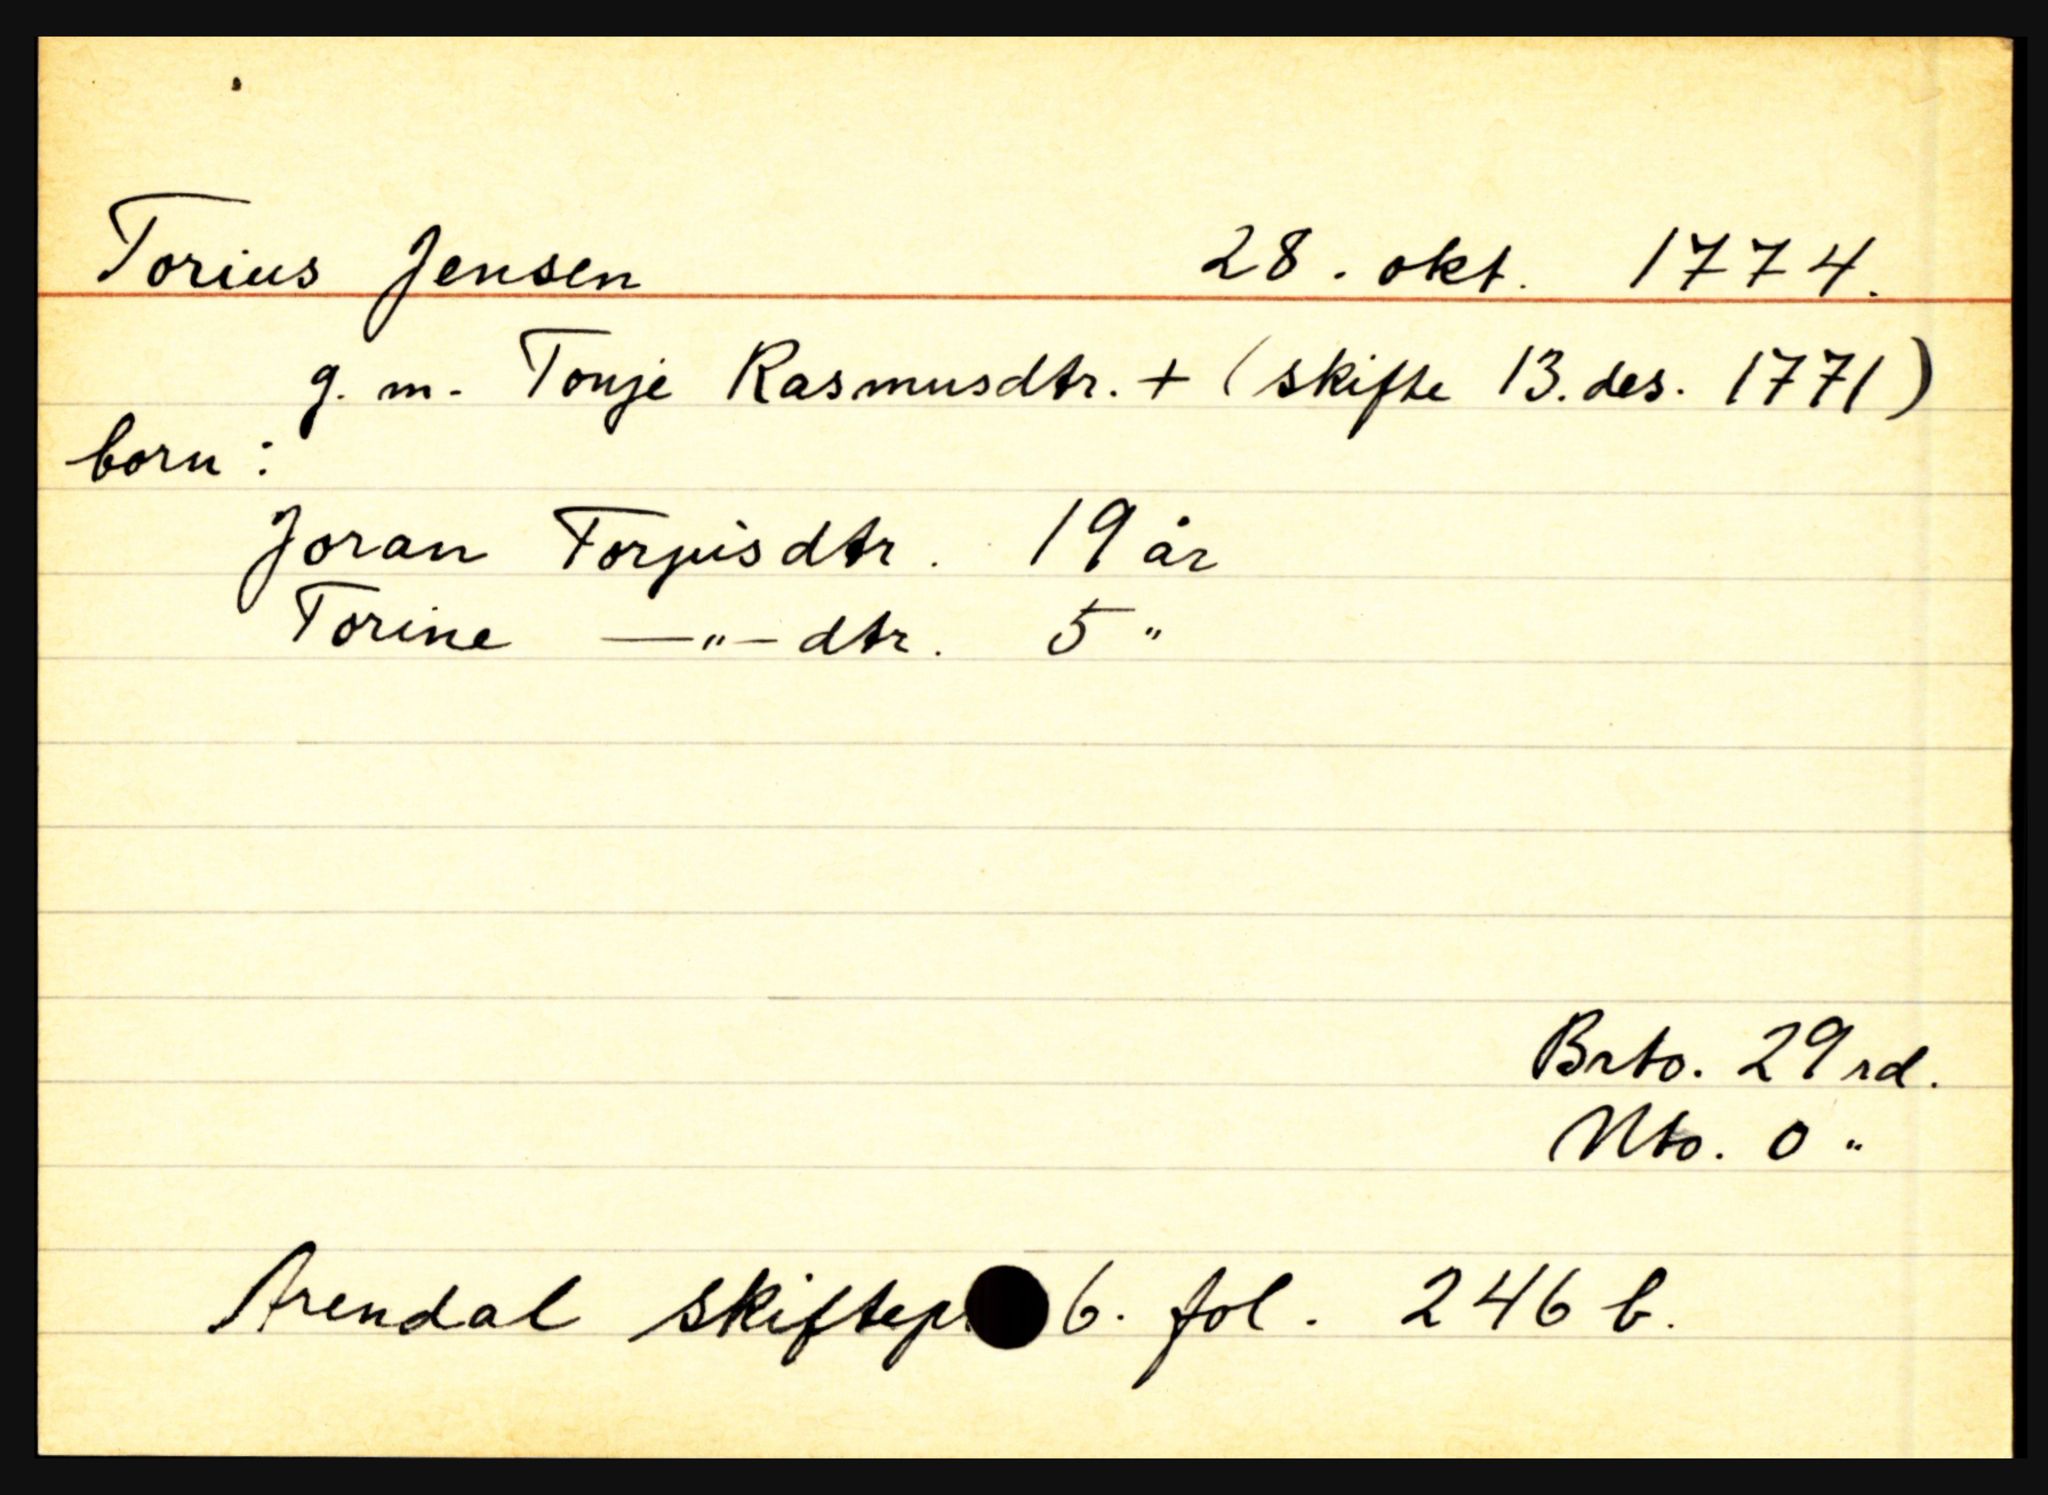 Torius Jensen 28. okt. 1774.
g. m. Tonje Rasmusdtr. + (skifte 13. des. 1771)
born:
Joran Torjusdtr. 19 år
Torine —"— dtr. 5 "
Brto. 29 rd.
Nto. 0 "
Arendal skiftep 6. fol. 246 b.